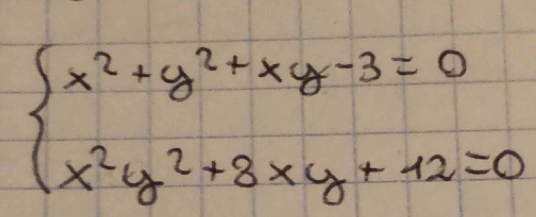 x² + y² + xy - 3 = 0
x²y² + 8xy + 12 = 0